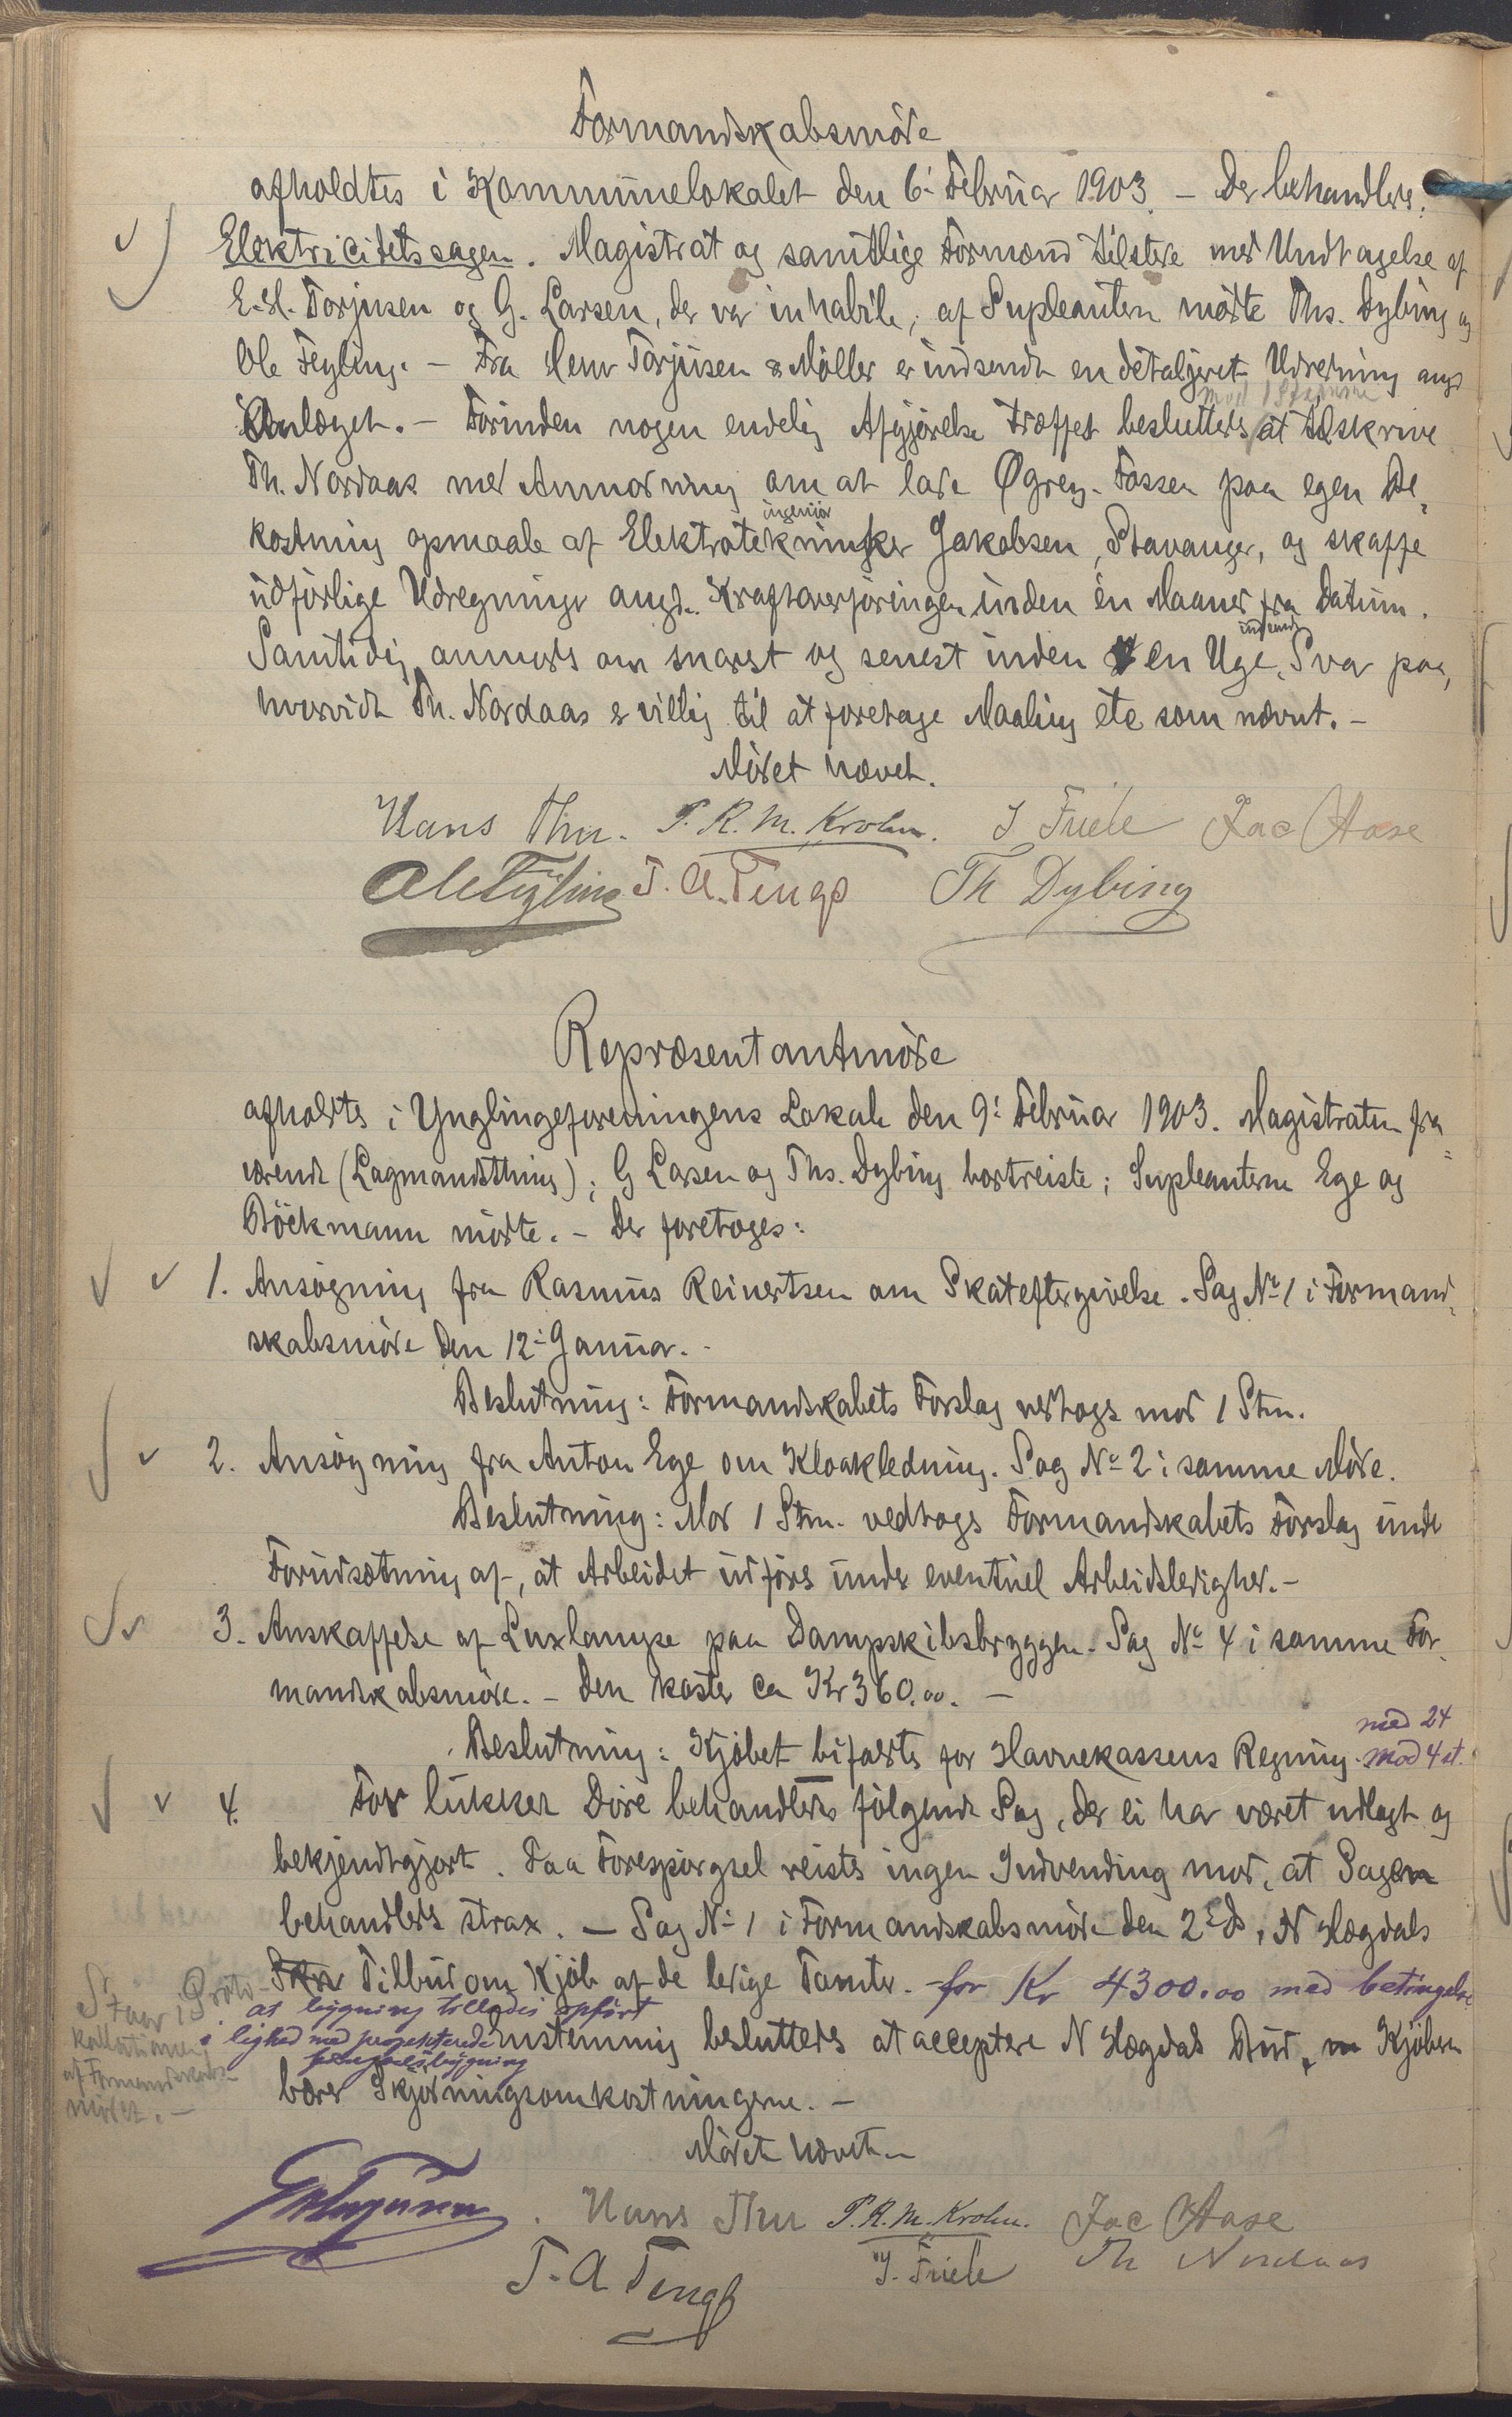 Formandskabsmöde
afholdtes i Kommunelokalet den 6: Februar 1903. – Der behandledes:
Elektricitetssagen. Magistrat og samtlige Formænd tilstede med Undtagelse af
E. H. Torjusen og G. Larsen, der var inhabile; af Supleanter mödte Ths. Dybing og
Ole Feyling. – Fra Herr Torjusen & Möller er indsendt en detaljeret Udredning angd
Anlæget. – Forinden nogen endelig Afgjörelse træffes besluttedes mod 1 Stemme at tilskrive
Th. Nordaas med Anmodning om at lade Øgrey-Fossen paa egen Be-
kostning opmaale af Elektroteknisker ingeniör Jakobsen, Stavanger, og skaffe
udförlige Udregninger angd. Kraftoverföringen inden én Maaned fra Datum.
Samtidig anmodes om snarest og senest inden en Uge indsendt Svar paa,
hvorvidt Th. Nordaas er villig til at foretage Maaling etc som nævnt. –
Mödet hævet.
Hans Thu. P. R. M. Krohn. J Friele Jac Aase
Ole Feyling T. A. Tengs Th Dybing
Repræsentantmöde
afholdtes i Ynglingeforeningens Lokale den 9: Februar 1903. Magistraten fra-
værende (Lagmandsthing); G Larsen og Ths. Dybing bortreiste; Supleanterne Ege og
Böckmann mödte. – Der foretoges:
1. Ansögning fra Rasmus Reinertsen om Skatteftergivelse. Sag No 1 i Formand-
skabsmöde den 12: Januar. –
Beslutning: Formandskabets Forslag vedtoges mod 1 Stm.
2. Ansögning fra Anton Ege om Kloakledning. Sag No 2 i samme Möde.
Beslutning: Mod 1 Stm. vedtoges Formandskabets Forslag under
Forudsætning af, at Arbeidet udföres under eventuel Arbeidsledighed. –
3. Anskaffelse af Luxlampe paa Dampskibsbryggen. Sag No 4 i samme For-
mandskabsmöde. – Den koster ca Kr 360.00. –
Beslutning: Kjöbet bifaldtes for Havnekassens Regning. med 24
mod 4 st.
4. For lukkede Döre behandledes fölgende Sag, der ei har været udlagt og
bekjendtgjort. Paa Forespörgsel reistes ingen Indvending mod, at Sagen
behandledes strax. – Sag No 1 i Formandskabsmöde den 2 ds, N Hægdals
Tilbud om Kjöb af de ledige Tomter. – for Kr 4300.00 med betingelse
at bygning tillades opfört
i lighed med projekterede
Enstemmig besluttedes at acceptere N Hægdals Bud, Kjöberen
bærer Skjödningsomkostningerne. –
Staar i Proto-
kollationen
af Formandskabs-
mödet. –
Mödet hævet. –
E H Torjusen. Hans Thu P. R. M. Krohn. Jac Aase
T. A Tengs J. Friele Th Nordaas